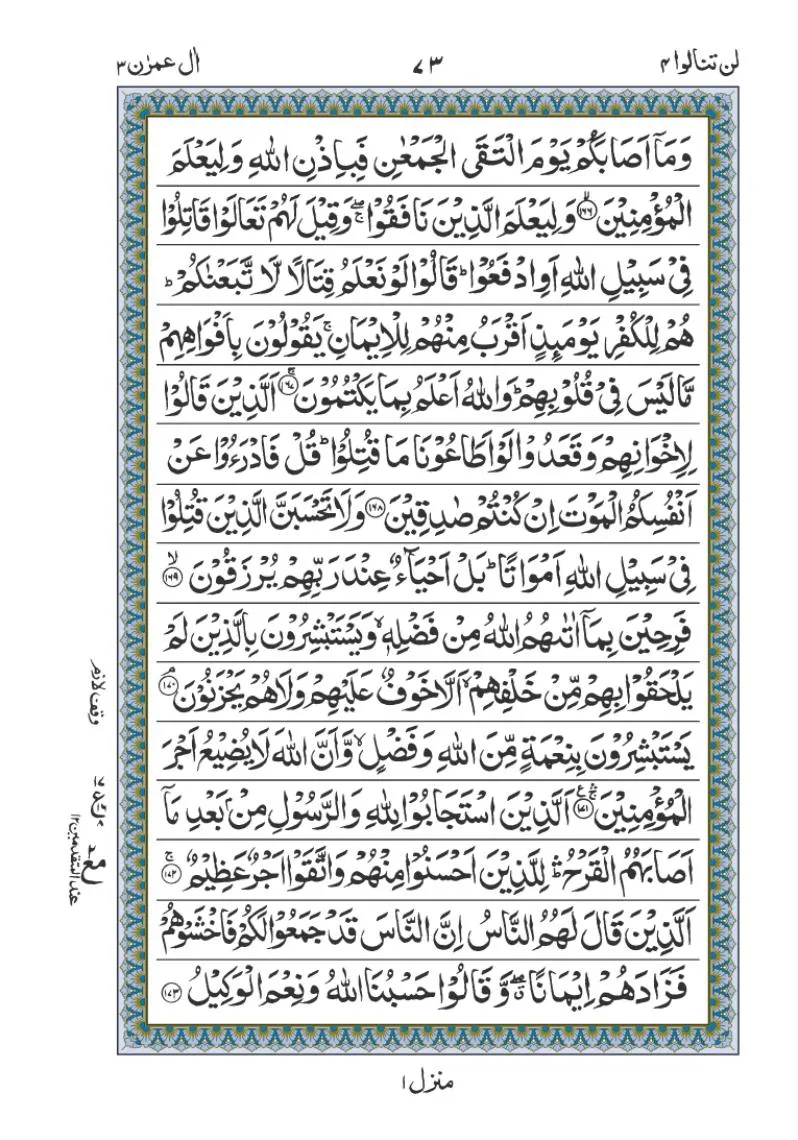 لن تنالوا ۴
۷۳
اٰل عمرٰن ۳
وَمَاۤ اَصَابَكُمْ يَوْمَ الْتَقَى الْجَمْعٰنِ فَبِاِذْنِ اللّٰهِ وَلِيَعْلَمَ
الْمُؤْمِنِيْنَ ۙ‏﴿۱۶۶﴾ وَلِيَعْلَمَ الَّذِيْنَ نَافَقُوْا ۖۚ وَقِيْلَ لَهُمْ تَعَالَوْا قَاتِلُوْا
فِيْ سَبِيْلِ اللّٰهِ اَوِ ادْفَعُوْا ؕ قَالُوْا لَوْ نَعْلَمُ قِتَالًا لَّا تَّبَعْنٰكُمْ ؕ
هُمْ لِلْكُفْرِ يَوْمَىِٕذٍ اَقْرَبُ مِنْهُمْ لِلْاِيْمَانِ ۚ يَقُوْلُوْنَ بِاَفْوَاهِهِمْ
مَّا لَيْسَ فِيْ قُلُوْبِهِمْ ؕ وَاللّٰهُ اَعْلَمُ بِمَا يَكْتُمُوْنَ ۚ‏﴿۱۶۷﴾ اَلَّذِيْنَ قَالُوْا
لِاِخْوَانِهِمْ وَقَعَدُوْا لَوْ اَطَاعُوْنَا مَا قُتِلُوْا ؕ قُلْ فَادْرَءُوْا عَنْ
اَنْفُسِكُمُ الْمَوْتَ اِنْ كُنْتُمْ صٰدِقِيْنَ ﴿۱۶۸﴾ وَلَا تَحْسَبَنَّ الَّذِيْنَ قُتِلُوْا
فِيْ سَبِيْلِ اللّٰهِ اَمْوَاتًا ؕ بَلْ اَحْيَآءٌ عِنْدَ رَبِّهِمْ يُرْزَقُوْنَ ۙ‏﴿۱۶۹﴾
فَرِحِيْنَ بِمَاۤ اٰتٰىهُمُ اللّٰهُ مِنْ فَضْلِهٖ ۙ وَيَسْتَبْشِرُوْنَ بِالَّذِيْنَ لَمْ
يَلْحَقُوْا بِهِمْ مِّنْ خَلْفِهِمْ ۙ اَلَّا خَوْفٌ عَلَيْهِمْ وَلَا هُمْ يَحْزَنُوْنَ ۘ‏﴿۱۷۰﴾
يَسْتَبْشِرُوْنَ بِنِعْمَةٍ مِّنَ اللّٰهِ وَفَضْلٍ ۙ وَّاَنَّ اللّٰهَ لَا يُضِيْعُ اَجْرَ
الْمُؤْمِنِيْنَ ۚۛ‏﴿۱۷۱﴾ اَلَّذِيْنَ اسْتَجَابُوْا لِلّٰهِ وَالرَّسُوْلِ مِنْۢ بَعْدِ مَاۤ
اَصَابَهُمُ الْقَرْحُ ۛؕ لِلَّذِيْنَ اَحْسَنُوْا مِنْهُمْ وَاتَّقَوْا اَجْرٌ عَظِيْمٌ ۚ‏﴿۱۷۲﴾
اَلَّذِيْنَ قَالَ لَهُمُ النَّاسُ اِنَّ النَّاسَ قَدْ جَمَعُوْا لَكُمْ فَاخْشَوْهُمْ
فَزَادَهُمْ اِيْمَانًا ۖۗ وَّقَالُوْا حَسْبُنَا اللّٰهُ وَنِعْمَ الْوَكِيْلُ ﴿۱۷۳﴾
وقف لازم
عند المتقدمين ۱۲
منزل ۱